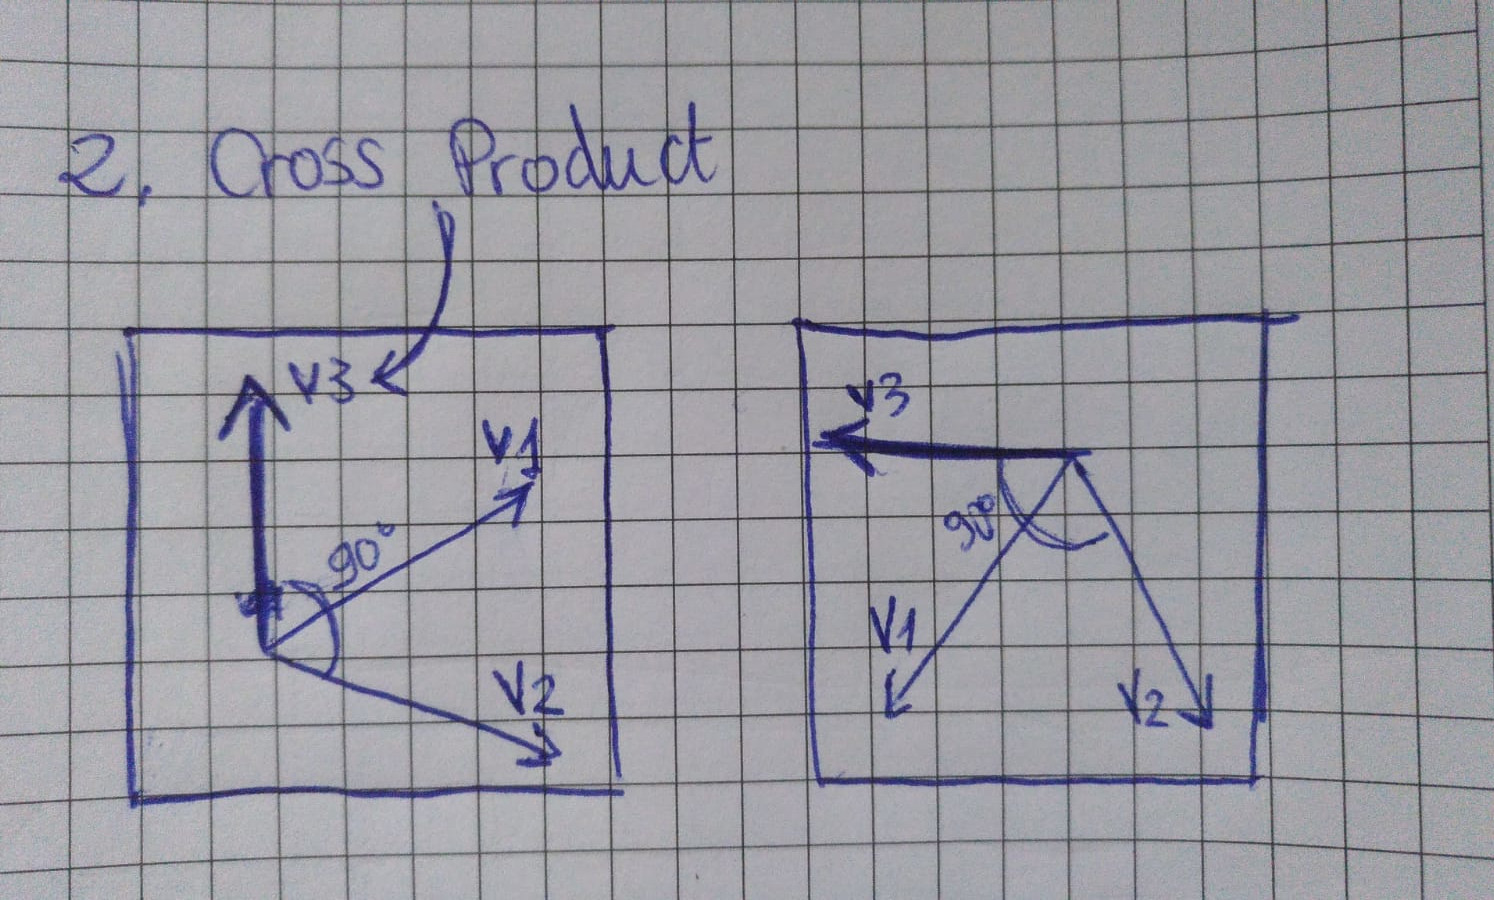 2. Cross Product
V3
V1
90°
V2
V3
90°
V1
V2